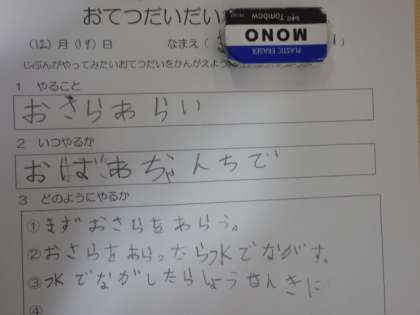 おてつだいだい
(12)月(19)日 なまえ(
じぶんがやってみたいおてつだいをかんがえよう
PLASTIC ERASER
MONO
Tombow
1 やること
おさらあらい
2 いつやるか
おばあちゃんちで
3 どのようにやるか
①まずおさらをあらう。
②おさらをあらったら水でながす。
③水でながしたらしょうせんきに
④